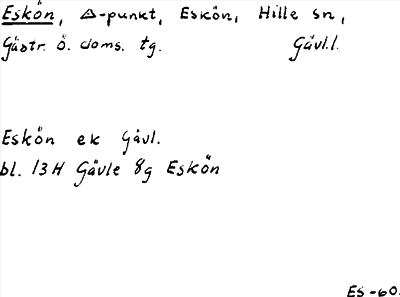 Eskön, △-punkt, Eskön, Hille sn,
Gästr. ö. doms. tg. Gävl.l.
Eskön ek Gävl.
bl. 13H Gävle 8g Eskön
ES-60.